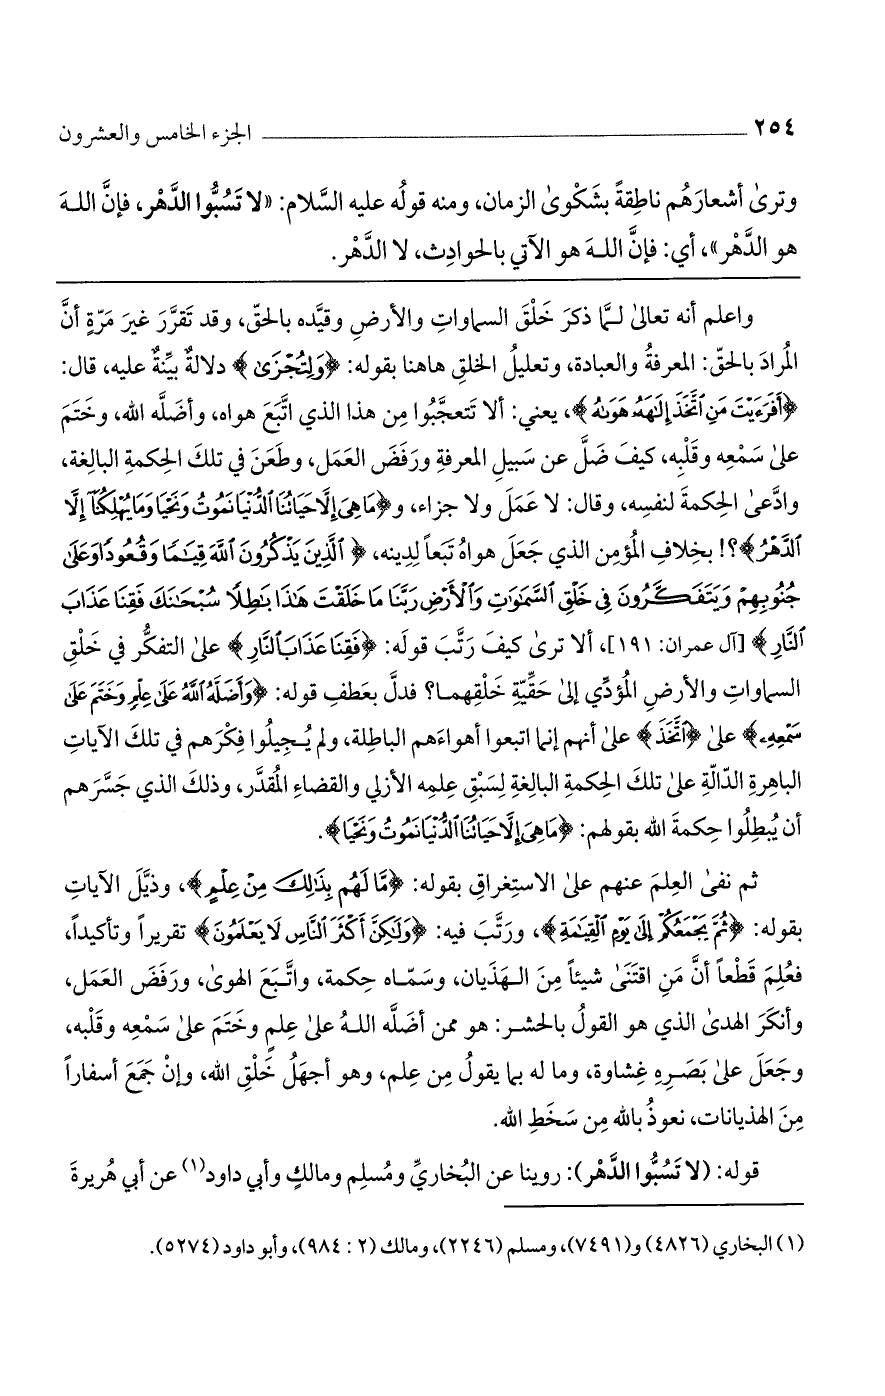 ٢٥٤ ــــــــــ الجزء الخامس والعشرون
وترىٰ أشعارَهُم ناطِقةً بشَكْوىٰ الزمان، ومنه قولُه عليه السَّلام: «لا تَسُبُّوا الدَّهْر، فإنَّ اللـهَ
هو الدَّهْر»، أي: فإنَّ اللـهَ هو الآتي بالحوادِث، لا الدَّهْر.
واعلم أنه تعالىٰ لـمَّا ذكرَ خَلْقَ السماواتِ والأرضِ وقيَّده بالحقّ، وقد تَقرَّرَ غيرَ مَرّةٍ أنَّ
المُرادَ بالحقّ: المعرفةُ والعبادة، وتعليلُ الخلقِ هاهنا بقوله: ﴿وَلِتُجْزَىٰ﴾ دلالةٌ بيِّنةٌ عليه، قال:
﴿أَفَرَءَيْتَ مَنِ ٱتَّخَذَ إِلَٰهَهُۥ هَوَىٰهُ﴾، يعني: ألا تَتعجَّبُوا مِن هذا الذي اتَّبَعَ هواه، وأضَلَّه الله، وخَتَمَ
علىٰ سَمْعِه وقَلْبِه، كيفَ ضَلَّ عن سَبيلِ المعرفةِ ورَفَضَ العَمَل، وطَعَنَ في تلكَ الحِكمةِ البالِغة،
وادَّعىٰ الحِكمةَ لنفسِه، وقال: لا عَمَلَ ولا جزاء، و﴿مَا هِىَ إِلَّا حَيَاتُنَا ٱلدُّنْيَا نَمُوتُ وَنَحْيَا وَمَا يُهْلِكُنَآ إِلَّا
ٱلدَّهْرُ﴾؟! بخِلافِ المُؤمِن الذي جَعَلَ هواهُ تَبَعاً لِدِينه، ﴿ٱلَّذِينَ يَذْكُرُونَ ٱللَّهَ قِيَٰمًا وَقُعُودًا وَعَلَىٰ
جُنُوبِهِمْ وَيَتَفَكَّرُونَ فِى خَلْقِ ٱلسَّمَٰوَٰتِ وَٱلْأَرْضِ رَبَّنَا مَا خَلَقْتَ هَٰذَا بَٰطِلًا سُبْحَٰنَكَ فَقِنَا عَذَابَ
ٱلنَّارِ﴾ [آل عمران: ١٩١]، ألا ترىٰ كيفَ رَتَّبَ قولَه: ﴿فَقِنَا عَذَابَ ٱلنَّارِ﴾ علىٰ التفكُّر في خَلْقِ
السماواتِ والأرضِ المُؤدِّي إلىٰ حَقِّيّةِ خَلْقِهمـا؟ فدلَّ بعَطفِ قوله: ﴿وَأَضَلَّهُ ٱللَّهُ عَلَىٰ عِلْمٍ وَخَتَمَ عَلَىٰ
سَمْعِهِۦ﴾ علىٰ ﴿ٱتَّخَذَ﴾ علىٰ أنهم إنما اتبعوا أهواءَهم الباطِلة، ولم يُـجِيلُوا فِكْرَهم في تلكَ الآياتِ
الباهِرةِ الدّالّةِ علىٰ تلكَ الحِكمةِ البالِغةِ لِسَبْقِ عِلمِه الأزلي والقضاءِ المُقدَّر، وذلكَ الذي جَسَّرَهم
أن يُبطِلُوا حِكمةَ الله بقولهم: ﴿مَا هِىَ إِلَّا حَيَاتُنَا ٱلدُّنْيَا نَمُوتُ وَنَحْيَا﴾.
ثم نفىٰ العِلمَ عنهم علىٰ الاستِغراقِ بقوله: ﴿مَّا لَهُم بِذَٰلِكَ مِنْ عِلْمٍ﴾، وذيَّلَ الآياتِ
بقوله: ﴿ثُمَّ يَجْمَعُكُمْ إِلَىٰ يَوْمِ ٱلْقِيَٰمَةِ﴾، ورَتَّبَ فيه: ﴿وَلَٰكِنَّ أَكْثَرَ ٱلنَّاسِ لَا يَعْلَمُونَ﴾ تقريراً وتأكيداً،
فعُلِمَ قَطْعاً أنَّ مَنِ اقتَنَىٰ شيئاً مِنَ الـهَذَيان، وسَمّـاه حِكمة، واتَّـبَعَ الهوىٰ، ورَفَضَ العَمَل،
وأنكَرَ الهدىٰ الذي هو القولُ بالحشـر: هو ممن أضَلَّه اللـهُ علىٰ عِلمٍ وخَتَمَ علىٰ سَمْعِه وقَلْبِه،
وجَعَلَ علىٰ بَصَـرِهِ غِشاوة، وما له بما يقولُ مِن عِلم، وهو أجهَلُ خَلْقِ الله، وإنْ جَمَعَ أسفاراً
مِنَ الهذيانات، نعوذُ بالله مِن سَخَطِ الله.
قوله: (لا تَسُبُّوا الدَّهْر): روينا عن البُخاريِّ ومُسلِم ومالكٍ وأبي داود(١) عن أبي هُريرةَ
(١) البخاري (٤٨٢٦) و(٧٤٩١)، ومسلم (٢٢٤٦)، ومالك (٢ : ٩٨٤)، وأبو داود (٥٢٧٤).